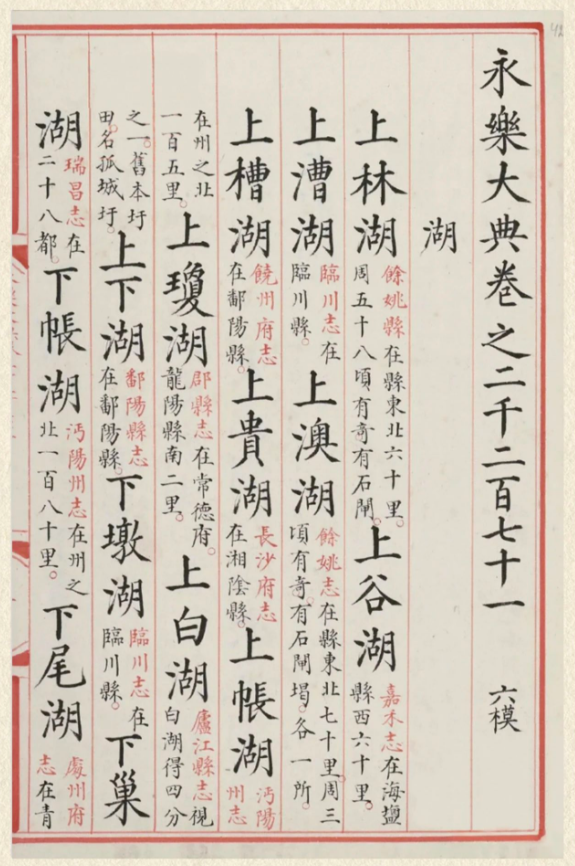 永樂大典卷之二千二百七十一 六模
湖
上林湖餘姚縣在縣東北六十里。周五十八頃有竒有石閘。上谷湖嘉禾志在海鹽縣西六十里。
上漕湖臨川志在臨川縣。上澳湖餘姚志在縣東北七十里。周三頃有竒。有石閘堨。各一所。
上槽湖饒州府志在鄱陽縣。上貴湖長沙府志在湘陰縣。上帳湖沔陽州志
在州之北一百五里。上瓊湖郡縣志在常德府。龍陽縣南二里。上白湖廬江縣志視白湖得四分
之一。舊本圩田。名孤城圩。上下湖鄱陽縣志在鄱陽縣。下墩湖臨川志在臨川縣。下巢
湖瑞昌志在二十八都。下帳湖沔陽州志在州之北一百八十里。下尾湖處州府志在青